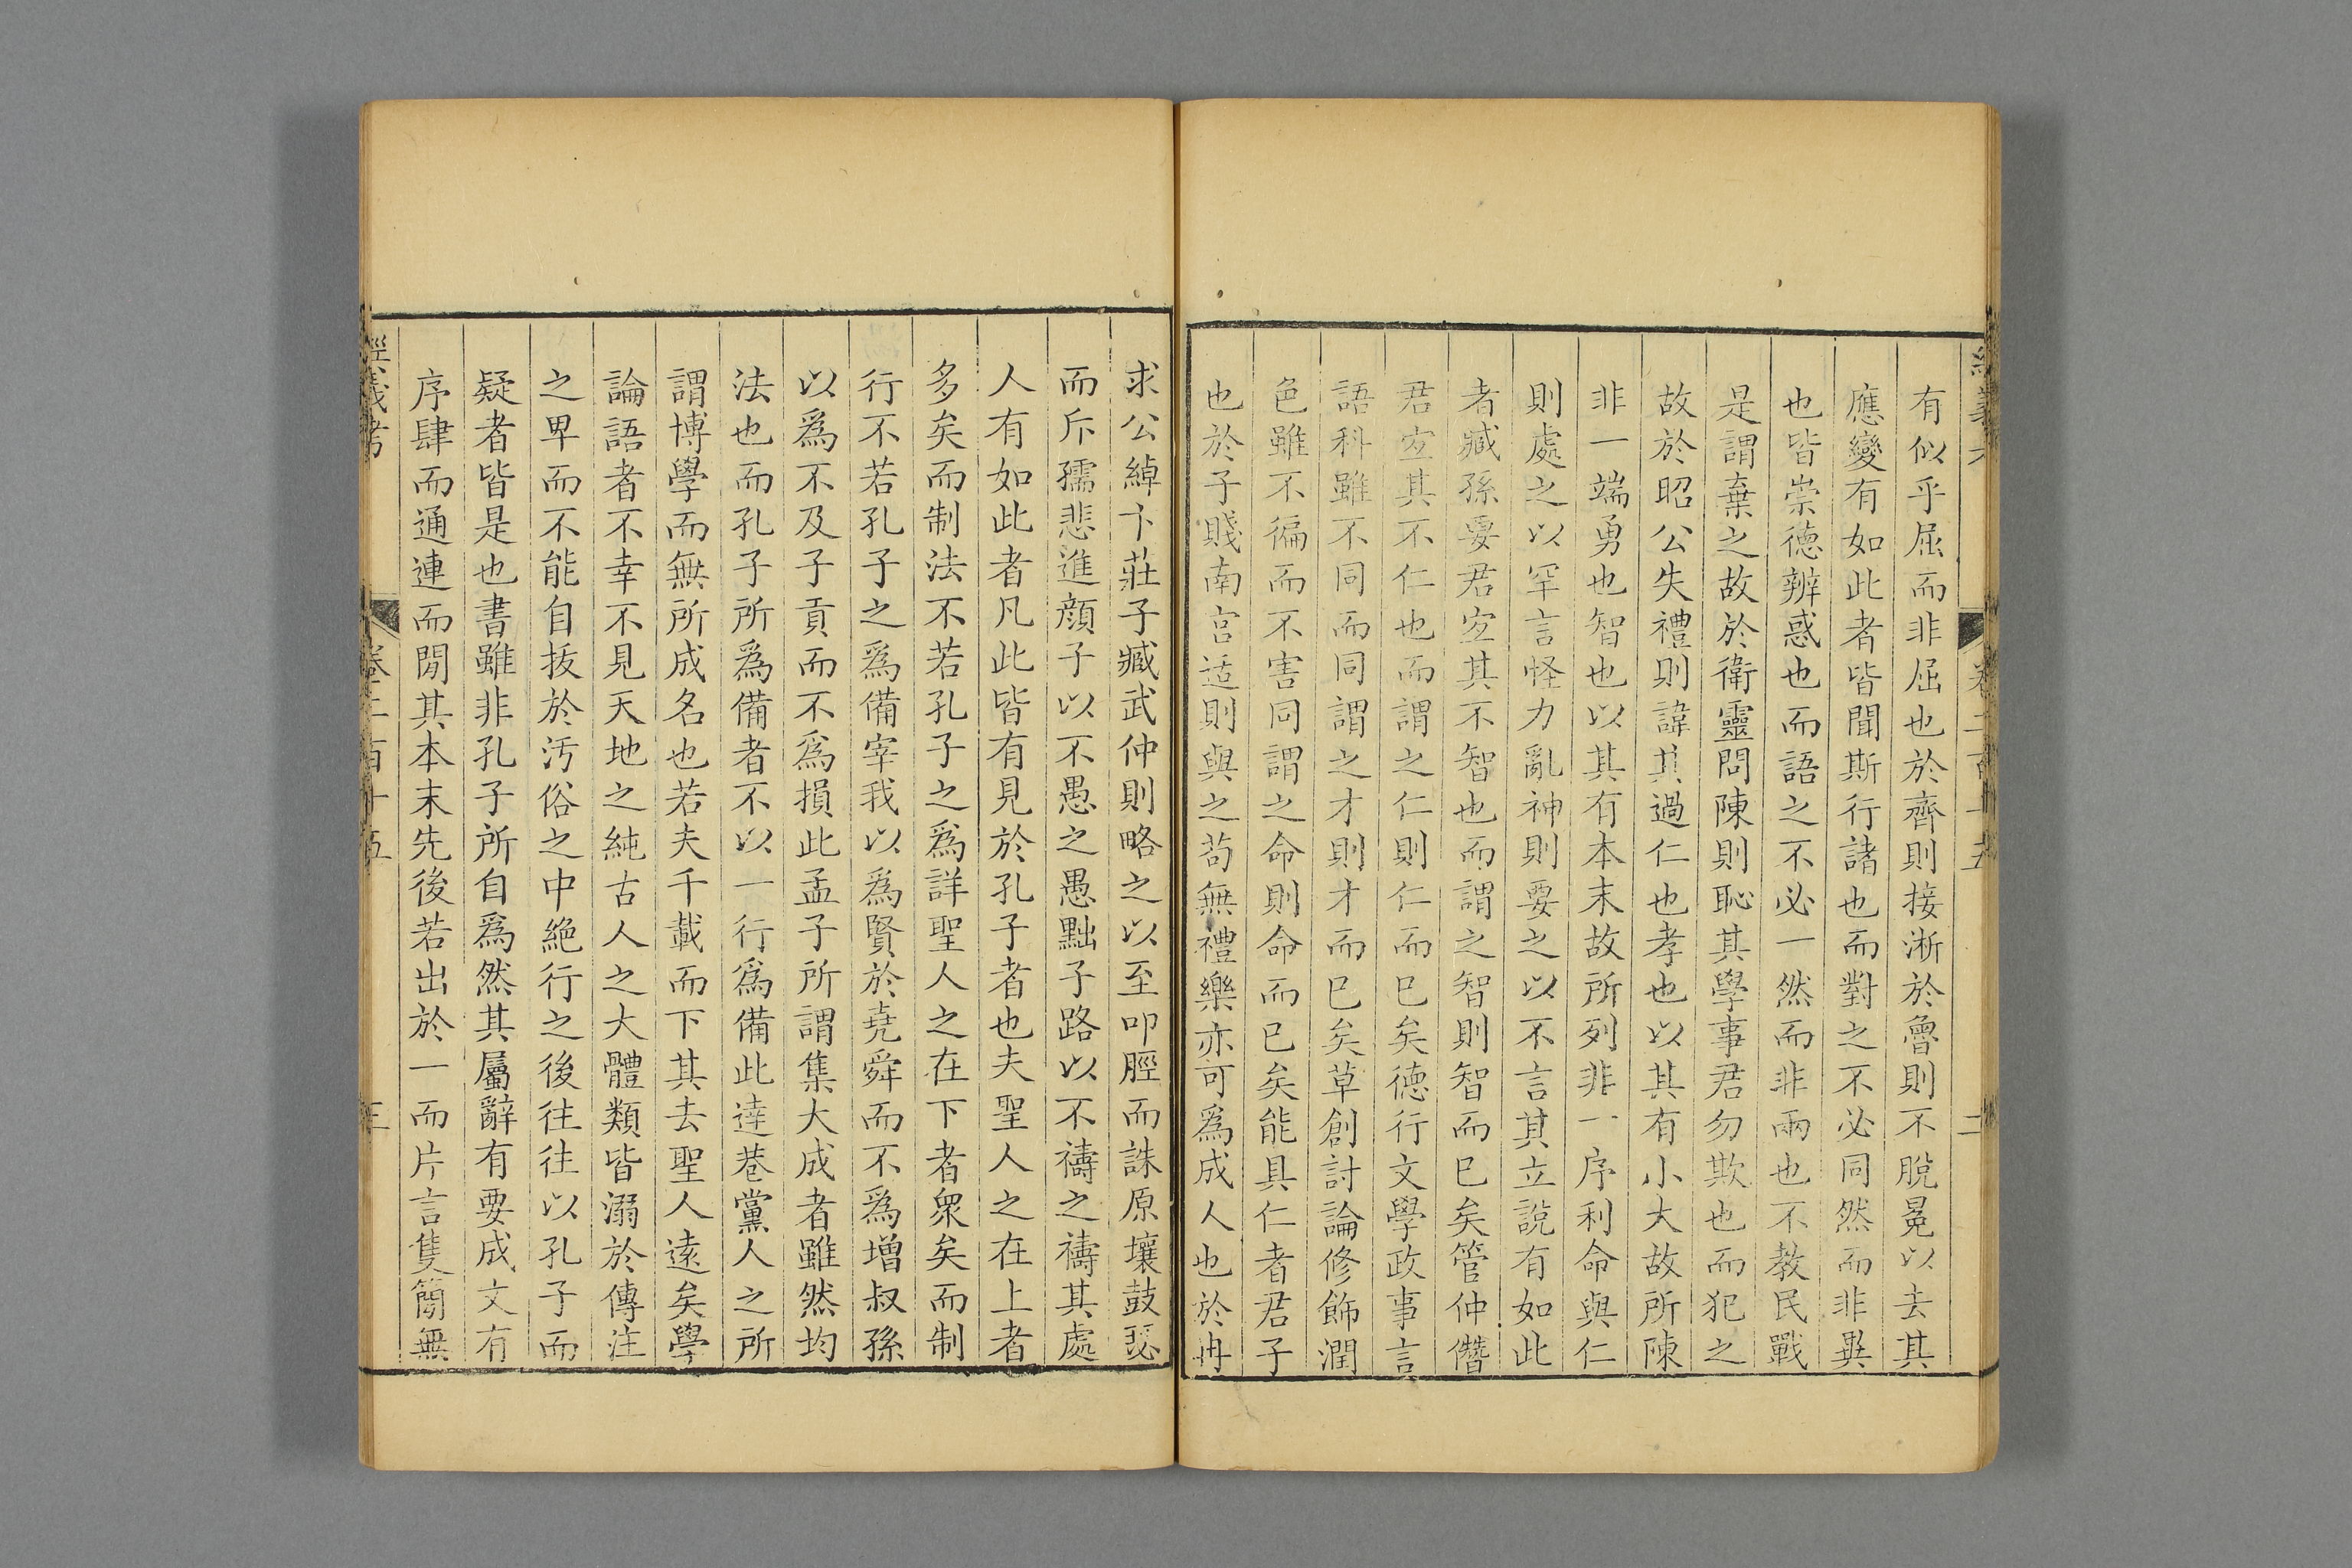 有似乎屈而非屈也於齊則接淅於魯則不脫冕以去其
應變有如此者皆聞斯行諸也而對之不必同然而非異
也皆崇德辨惑也而語之不必一然而非兩也不教民戰
是謂棄之故於衛靈問陳則恥其學事君勿欺也而犯之
故於昭公失禮則諱其過仁也孝也以其有小大故所陳
非一端勇也智也以其有本末故所列非一序利命與仁
則處之以罕言怪力亂神則要之以不言其立說有如此
者臧孫要君宐其不智也而謂之智則智而巳矣管仲僭
君宐其不仁也而謂之仁則仁而巳矣德行文學政事言
語科雖不同而同謂之才則才而巳矣草創討論修飾潤
色雖不徧而不害同謂之命則命而巳矣能具仁者君子
也於子賤南宮适則與之苟無禮樂亦可爲成人也於冉
求公綽卞莊子臧武仲則略之以至叩脛而誅原壤鼓瑟
而斥孺悲進顏子以不愚之愚黜子路以不禱之禱其處
人有如此者凡此皆有見於孔子者也夫聖人之在上者
多矣而制法不若孔子之爲詳聖人之在下者衆矣而制
行不若孔子之爲備宰我以爲賢於堯舜而不爲增叔孫
以爲不及子貢而不爲損此孟子所謂集大成者雖然均
法也而孔子所爲備者不以一行爲備此達巷黨人之所
謂博學而無所成名也若夫千載而下其去聖人遠矣學
論語者不幸不見天地之純古人之大體類皆溺於傳注
之卑而不能自拔於汚俗之中絕行之後往往以孔子而
疑者皆是也書雖非孔子所自爲然其屬辭有要成文有
序肆而通連而閒其本末先後若出於一而片言隻簡無
經義考
卷二百十五
三